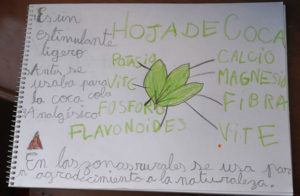 HOJA DE COCA
Es un
estimulante
ligero
Antes se
usaba para
la coca cola
Analgésico
POTASIO
VIT C
FOSFORO
FLAVONOIDES
CALCIO
MAGNESIO
FIBRA
VIT E
En las zonas rurales se usa para
agradecimiento a la naturaleza.